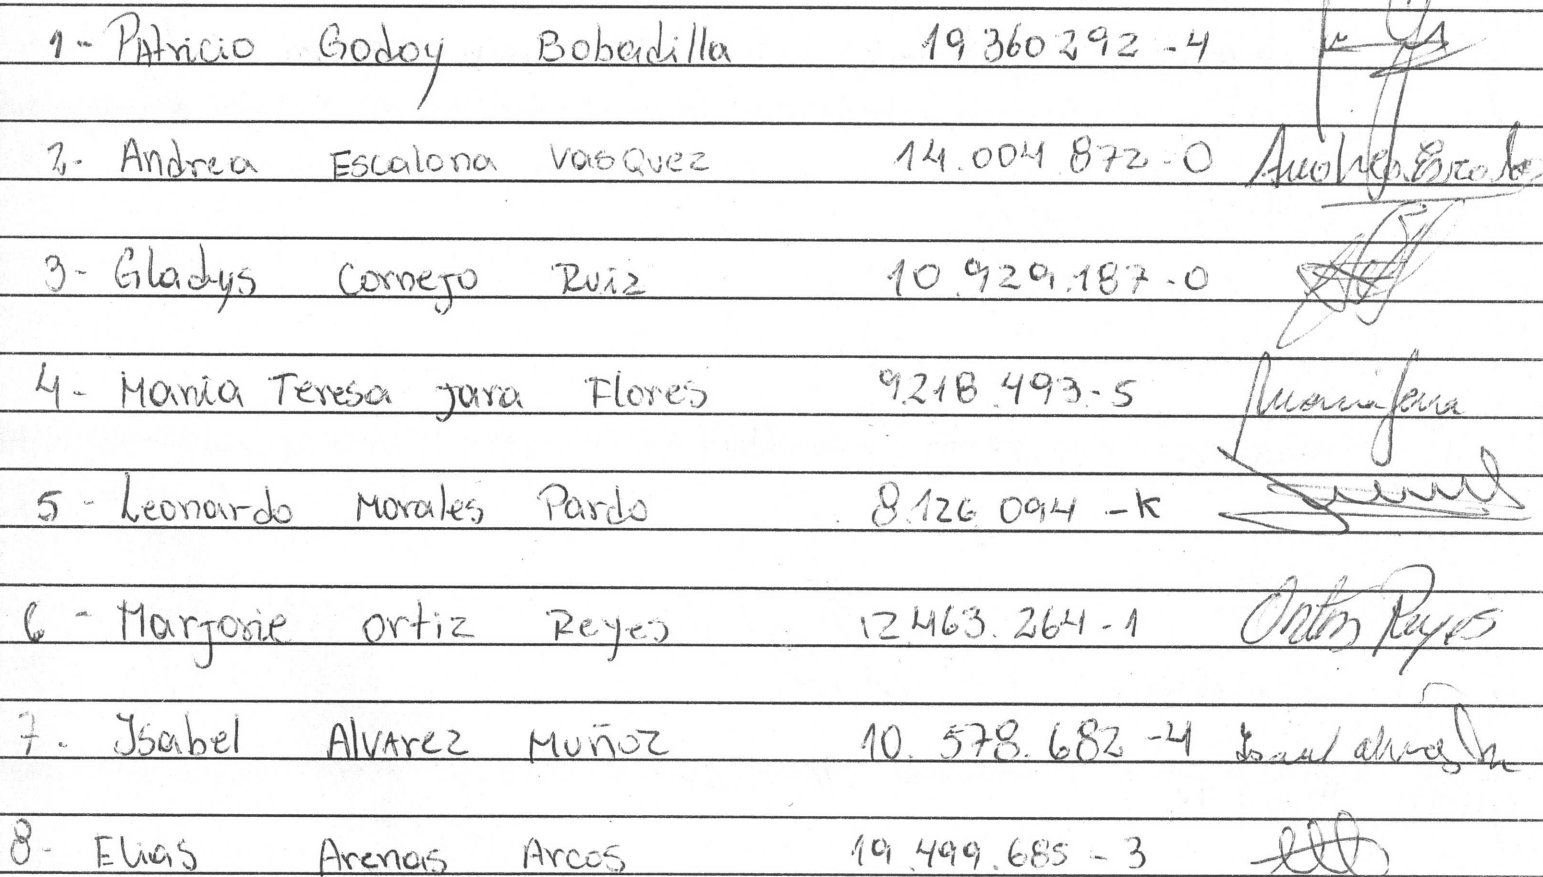 1- Patricio Godoy Bobadilla 19360292-4
2- Andrea Escalona Vasquez 14.004872-0
3- Gladys Cornejo Ruiz 10.929.187-0
4- Maria Teresa Jara Flores 9.218.493-5 Maria Jara
5- Leonardo Morales Pardo 8.126.094-K
6- Marjorie Ortiz Reyes 12.463.264-1 Ortiz Reyes
7. Isabel Alvarez Muñoz 10.578.682-4
8- Elias Arenas Arcos 19.499.685-3